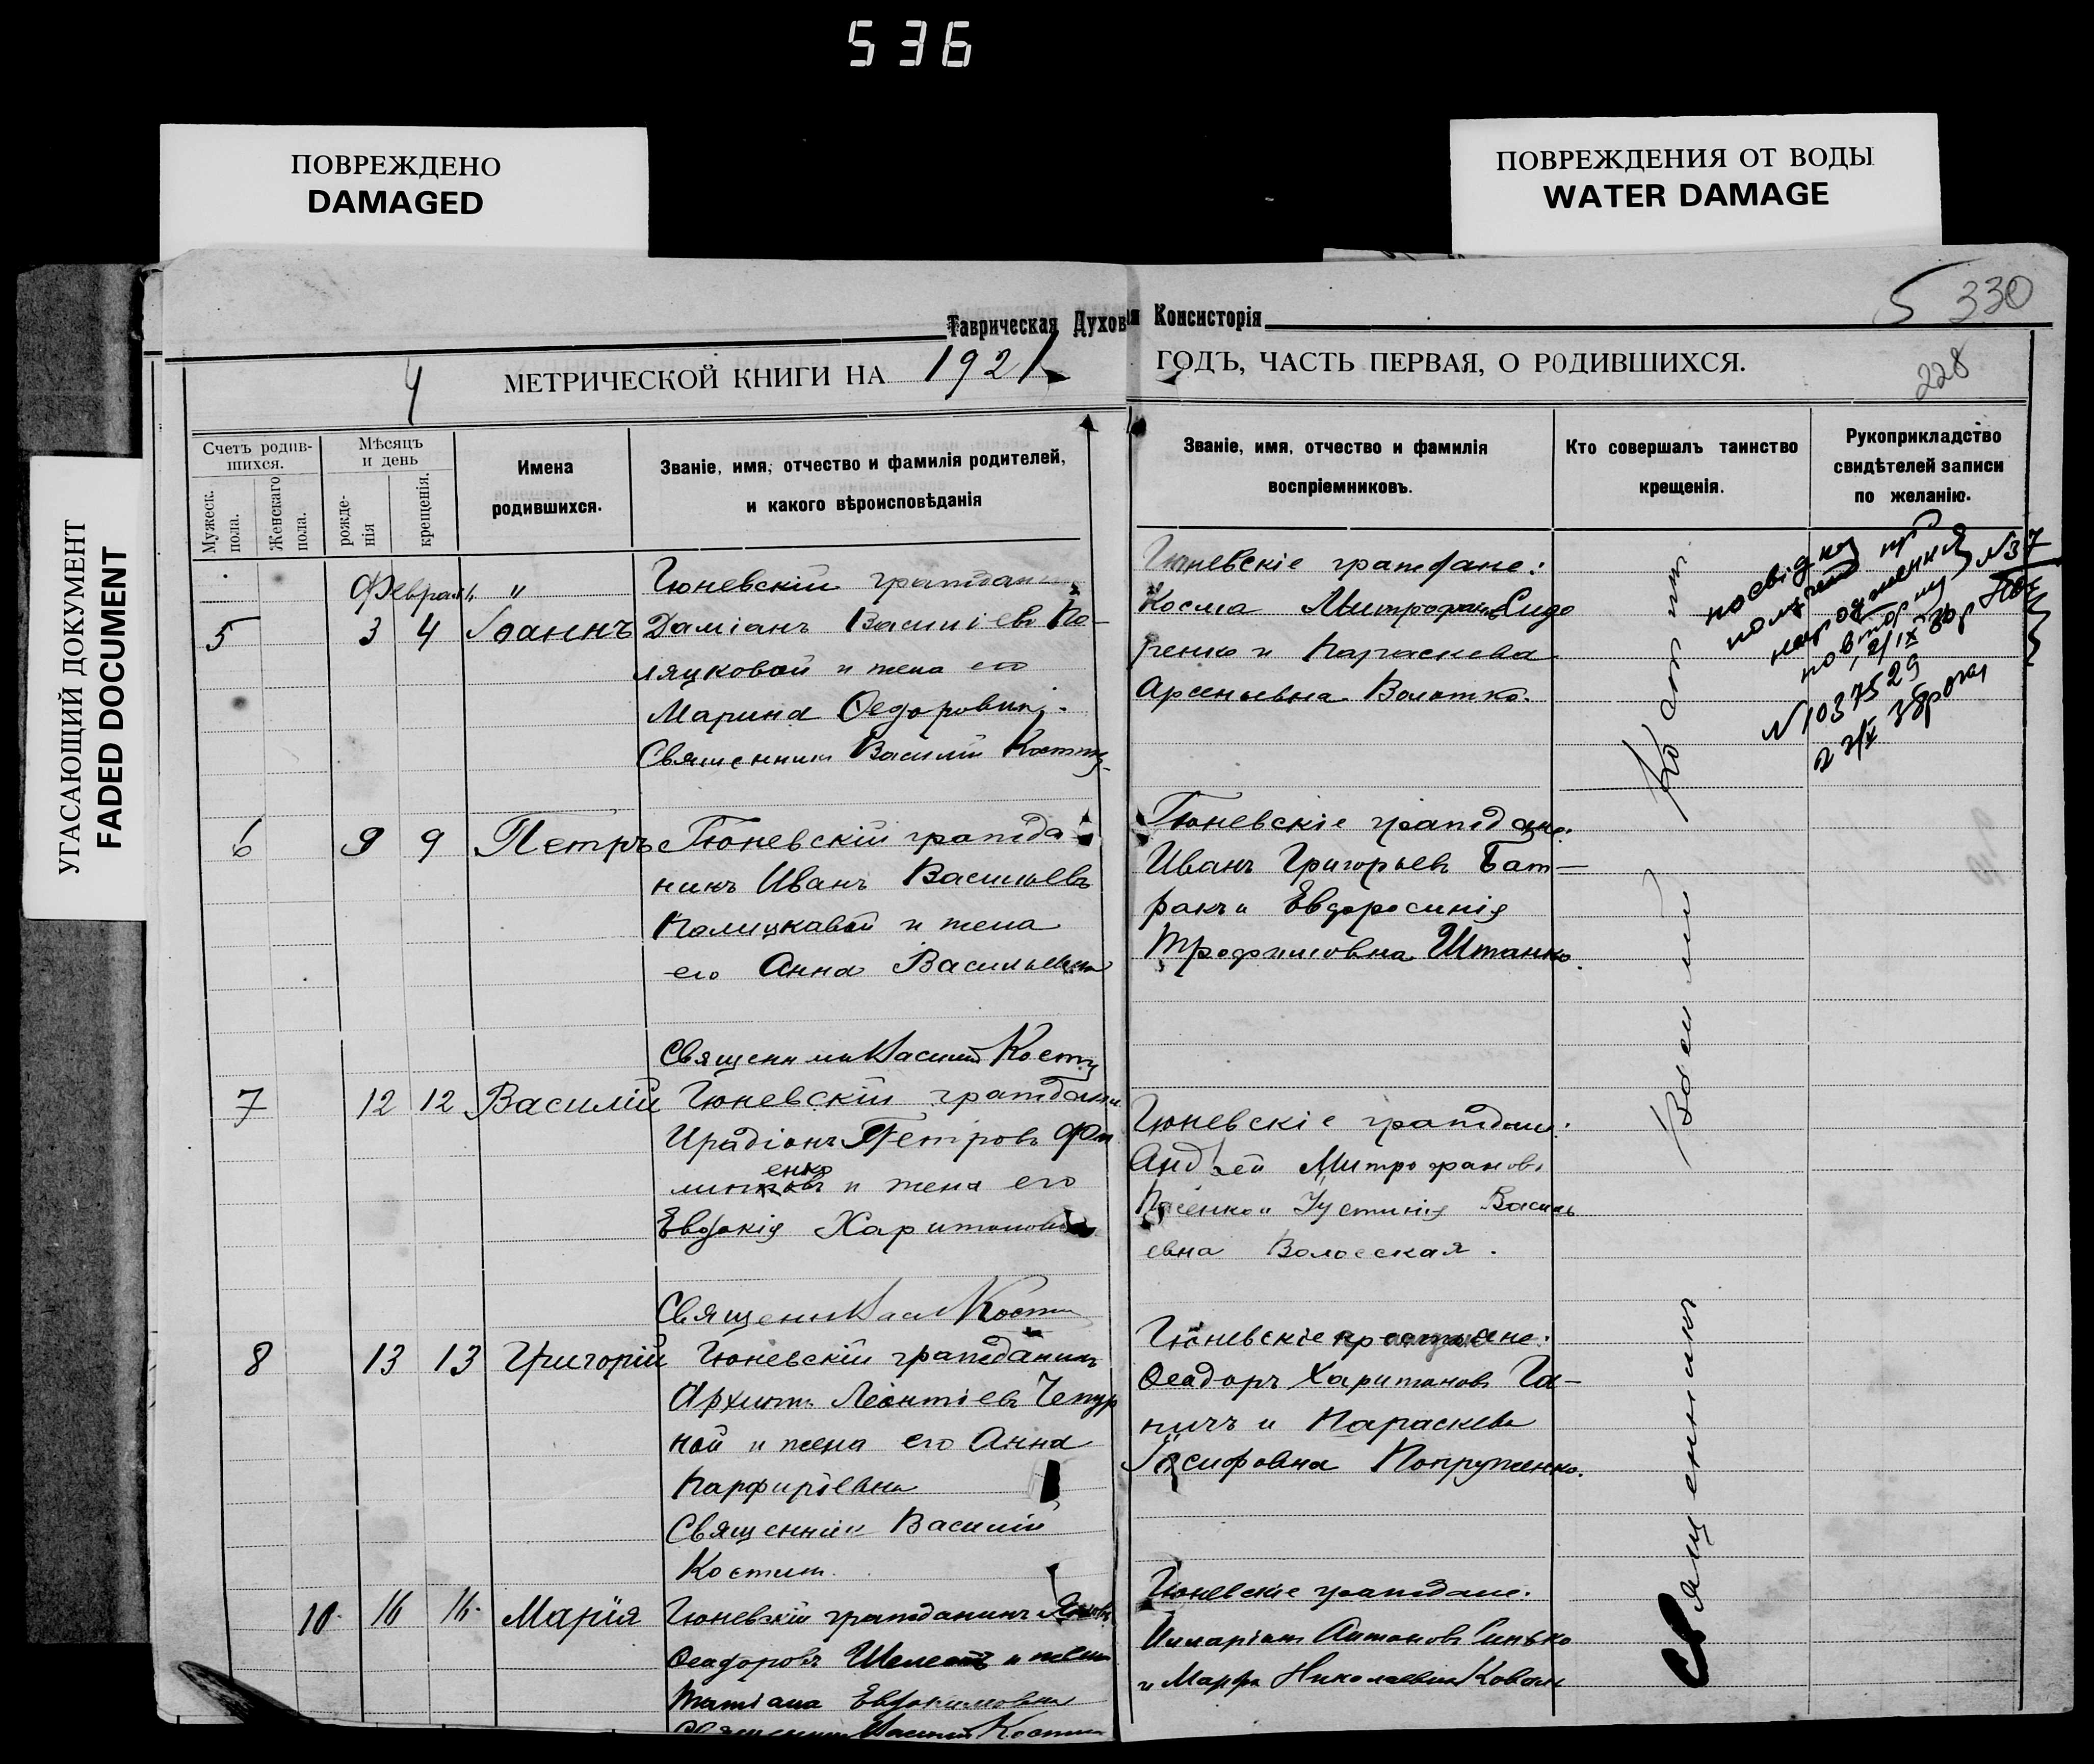 536
ПОВРЕЖДЕНО
DAMAGED
ПОВРЕЖДЕНИЯ ОТ ВОДЫ
WATER DAMAGE
УГАСАЮЩИЙ ДОКУМЕНТ
FADED DOCUMENT
Таврическая Духов Консисторія
5 330
4 МЕТРИЧЕСКОЙ КНИГИ НА 1921 ГОДЪ, ЧАСТЬ ПЕРВАЯ, О РОДИВШИХСЯ.
228
Счетъ родив-
шихся.
Мужеск.
пола.
Женскаго
пола.
Мѣсяцъ
и день
рожде-
нія
крещенія.
Имена
родившихся.
Званіе, имя, отчество и фамилія родителей,
и какого вѣроисповѣданія
Званіе, имя, отчество и фамилія
воспріемниковъ.
Кто совершалъ таинство
крещенія.
Рукоприкладство
свидѣтелей записи
по желанію.
Февраль "
5 3 4 Іоаннъ
Гюневскій граждани
Даміанъ Васильевъ По-
ляцковой и жена его
Марина Ѳедоровна.
Священник Василій Костин
Гюневскіе граждане:
Косма Митрофановъ Сидо
ренко и Параскева
Арсеньевна Волотко.
посвідку
народження
повторну
№ 37
2/IX 38р
№ 1037529
2/IX 38 року
6 9 9 Петръ
Гюневскій гражда
нинъ Иванъ Васильевъ
Полицкавой и жена
его Анна Васильевна
Священник Василий Костин
Гюневскіе граждане:
Иванъ Григорьевъ Бат-
ракъ и Евдоросинія
Трофимовна Штанко.
7 12 12 Василій
Гюневскій граждани
Ирадіонъ Петровъ Фо
енко
и жена его
Евдокія Харитоновна
Священ Вас Костин
Гюневскіе граждане:
Андрей Митрофановъ
и Устинія Василь
евна Волосская.
8 13 13 Григорій
Гюневскій гражданинъ
Архипъ Леонтіевъ Чепур
ной и жена его Анна
Парфиріевна
Священник Василій
Костин.
Гюневскіе
Ѳеадоръ Харитоновъ Га-
ничъ и Параскева
Іосифовна Попруженко.
10 16 16 Марія
Гюневскій гражданинъ Яковъ
Ѳеадоровъ Шелестъ и жена
Татіана Евдокимовна
Священник Василий Костин
Гюневскіе граждане.
Илларіонъ Антоновъ Синько
и Марфа Николаевна Коваль
Священникъ Василій Костин